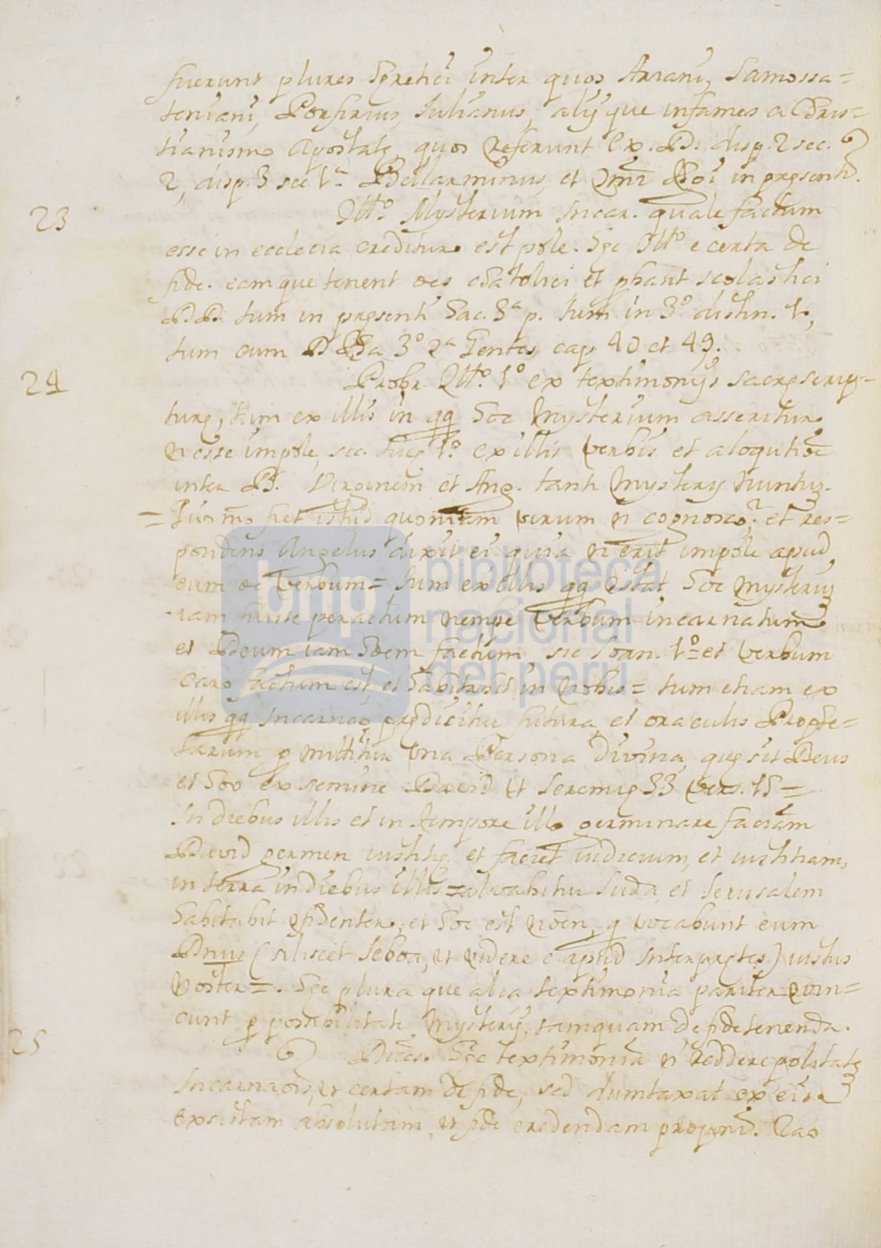 fuerunt plures Hæretici inter quos Arriani, Samossa=
teniani, Porfirius, Iulianus, alÿque infames a Chris=
tianismo Apostatę, quos referunt Ex. D. disp. 2 sec.
2, disp. 3 sec 1ª Bellarminus, et in pręsenti.
23 Mysterium Incar. quale factum
esse in ecclecia creditur est pole. Hęc e certa de
fide. eamque tenent oes Catolici et scolastici
D.D. tum in pręsenti hac 3ª p. tum in 3º distin. 1,
tum cum D. 3º Gentes cap 40 et 49.
24 Probr 1º ex textimonÿs sacręscrip=
turę, tum ex illis in qq hoc Mysterium asseritur
n esse impole, sec. 1º ex illis verbis et aloqutioē
inter B. Virginem et Ang. tanti Mysterÿ nuntiū.
= Quomo fiet istud quoniam virum n cognosco, et res=
pondens Angelus dixit ei quia n erit impole apud
eum oe verbum = tum ex illis qq hoc Mysteriū
iam fuisse peractum nempe Verbum incarnatum
et Deum iam hoem factum sic Ioan. 1º et Verbum
caro factum est, et habitavit in nobis = tum etiam ex
illis qq Incarnao prędicitur futura, et oraculis Prophe=
tarum mittitur una Persona divina, quę sit Deus
et ex semine David ut Ieremię 33 vers. 15 =
In diebus illis et in tempore illo germinare faciam
David germen iustitię, et faciet iudicium, et iustitiam,
in terra in diebus illis = salvabitur Iuda, et Ierusalem
habitabit confidenter, et hoc est noēn, q vocabunt eum
Dnus (siliscet Iehoa, ut videre e apud Interpretes) iustus
noster =. Hęc plura que alia textimonia pariter convin=
cunt possibilitate Mysterÿ, tamquam de fide tenenda.
25 Dices: Hęc textimonia n reddere politatē
Incarnaois, ut certam de fide, sed dumtaxat ex eius
existam absolutam, ut fide credendam Rao